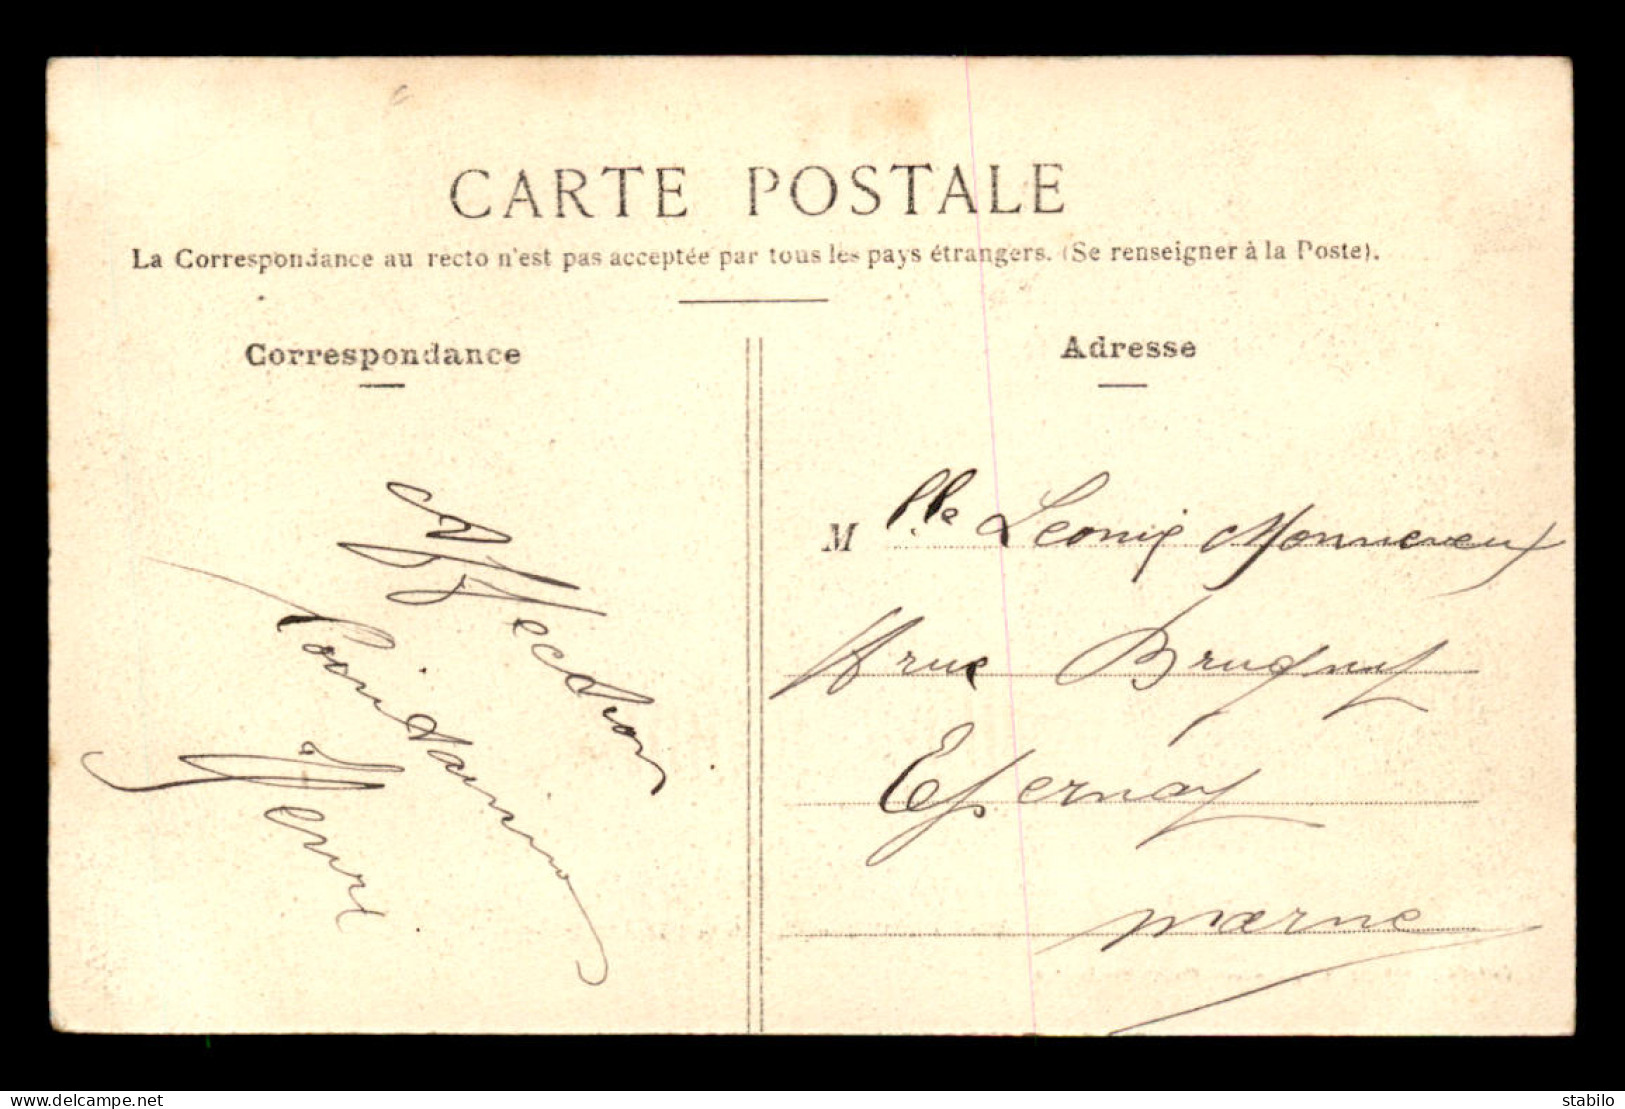 CARTE POSTALE
La Correspondance au recto n'est pas acceptée par tous les pays étrangers. (Se renseigner à la Poste).
Correspondance
Adresse
Affection
à
Mlle Leonie Monneveux
rue Brugny
Epernay
Marne
https://www.delcampe.net
stabilo